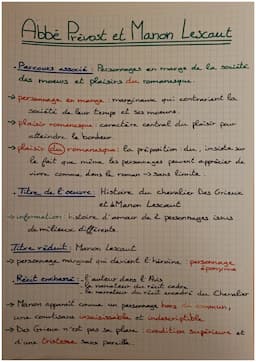 Abbé Prévost et Manon Lescaut
. Parcours associé : Personnages en marge de la société
des mœurs et plaisirs du romanesque.
→ personnage en marge : marginaux qui contrarient la
société de leur temps et ses mœurs.
→ plaisir romanesque : caractère central du plaisir pour
atteindre le bonheur
→ plaisir du romanesque : la préposition : du, insiste sur
le fait que même les personnages peuvent apprécier de
vivre comme dans le roman → sans limite.
. Titre de l'oeuvre : Histoire du chevalier Des Grieux
et de Manon Lescaut
→ information : histoire d'amour de 2 personnages issus
de milieux différents.
Titre réduit : Manon Lescaut
→ personnage marginal qui devient l'héroïne : personnage
éponyme
. Récit enchassé : - l'auteur dans l'Avis
- le narrateur du récit cadre
- le narrateur du récit encadré du Chevalier
→ Manon apparaît comme un personnage hors du commun,
une courtisane insaisissable et indescriptible.
→ Des Grieux n'est pas sa place : condition supérieure et
d'une tristesse sans pareille.